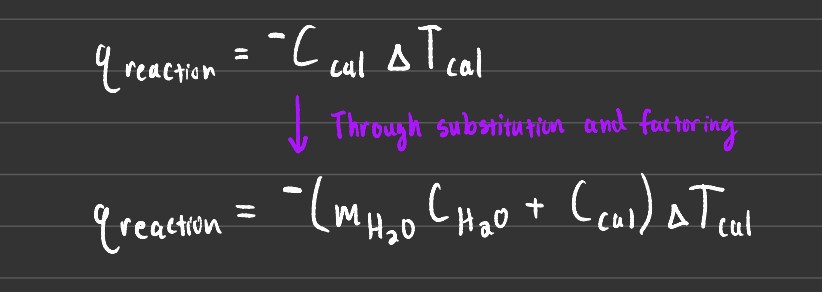 q reaction = -C cal ΔT cal
↓ Through substitution and factoring
q reaction = -(m H₂O C H₂O + C cal) ΔT cal